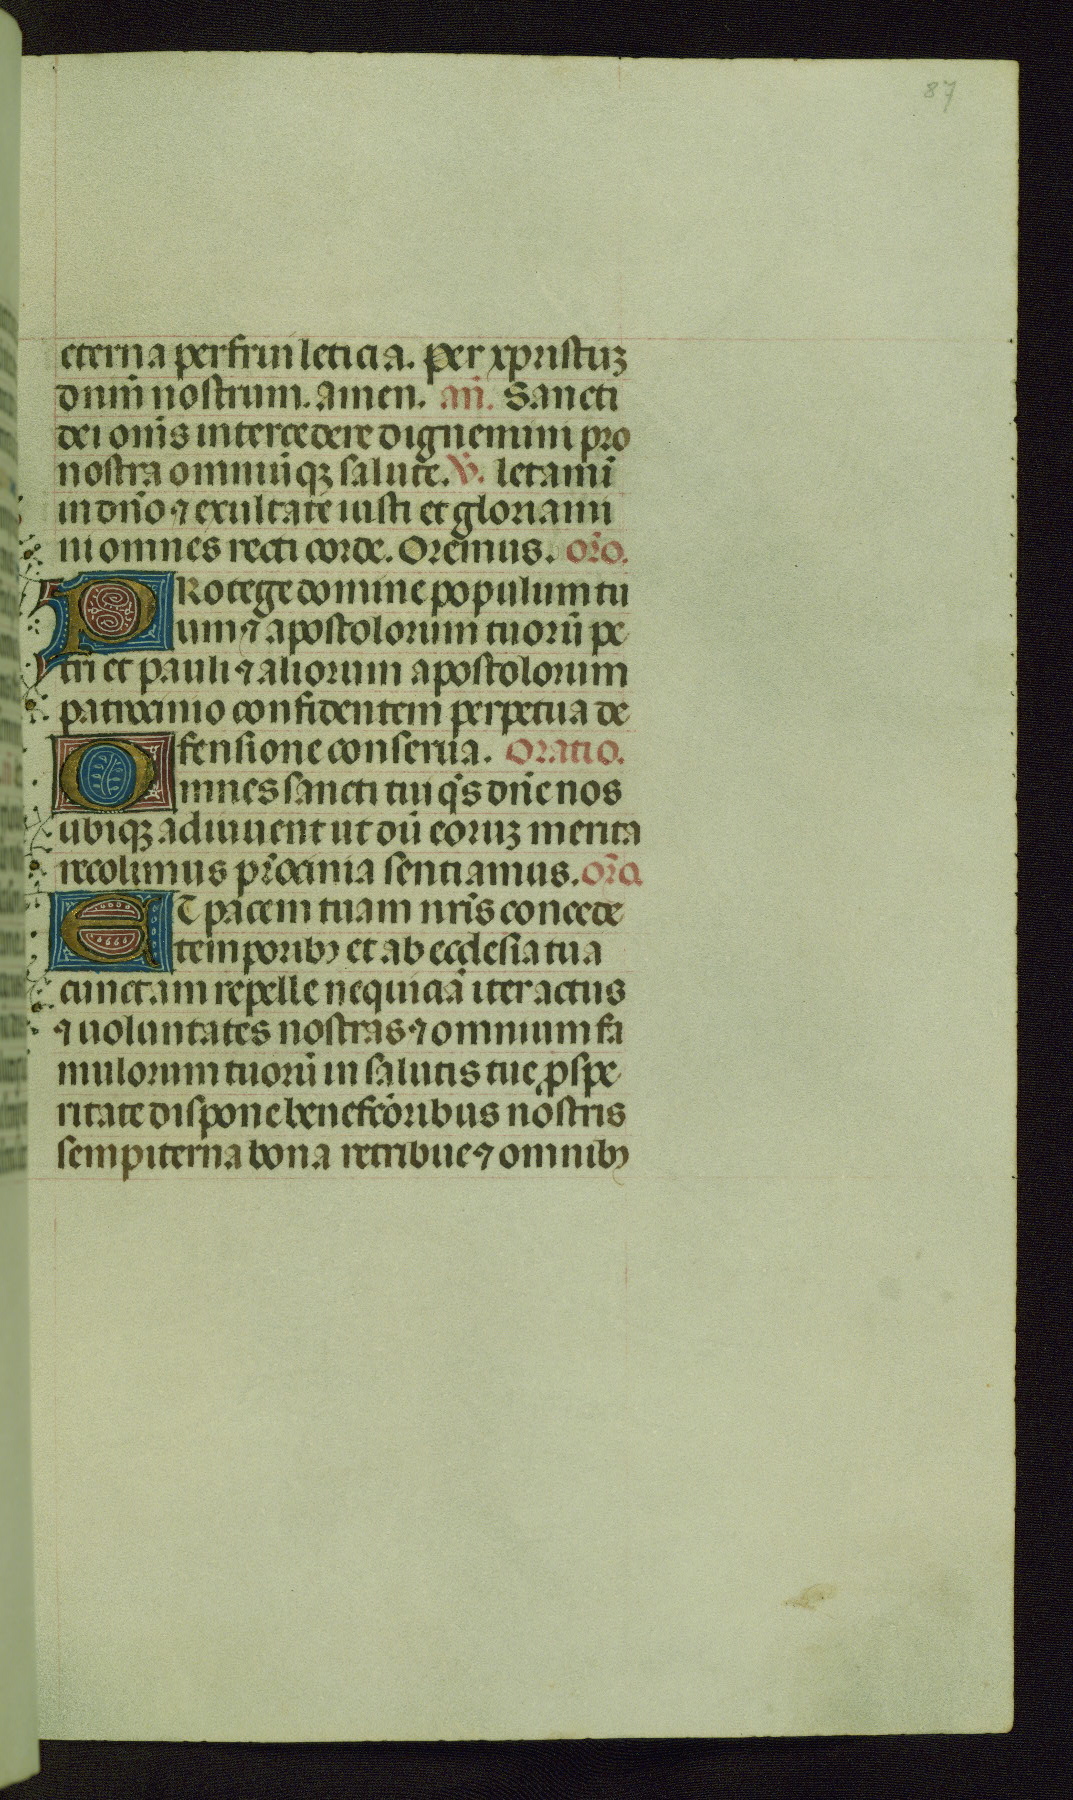 87
eterna perfrui leticia. Per xpristuz
dnm̄ nostrum. amen. an̄. Sancti
dei om̄s intercedere dignemini pro
nostra omniūqz salute. V̄. letamī
in dn̄o ⁊ exultate iusti et gloriami
ni omnes recti corde. Oremus. or̄o.
PRotege domine populum tu
um ⁊ apostolorum tuorū pe
tri et pauli ⁊ aliorum apostolorum
patrocinio confidentem perpetua de
fensione conserua. Oratio.
Omnes sancti tui qs̄ dn̄e nos
ubiqz adiuuent ut dū eoruz merita
recolimus pr̄ocinia sentiamus. or̄o.
ET pacem tuam nr̄is concede
temporibꝫ et ab ecclesia tua
cunctam repelle nequiciā iter actus
⁊ uoluntates nostras ⁊ omnium fa
mulorum tuorū in salutis tue ꝓspe
ritate dispone benefcōribus nostris
sempiterna bona retribue ⁊ omnibꝫ